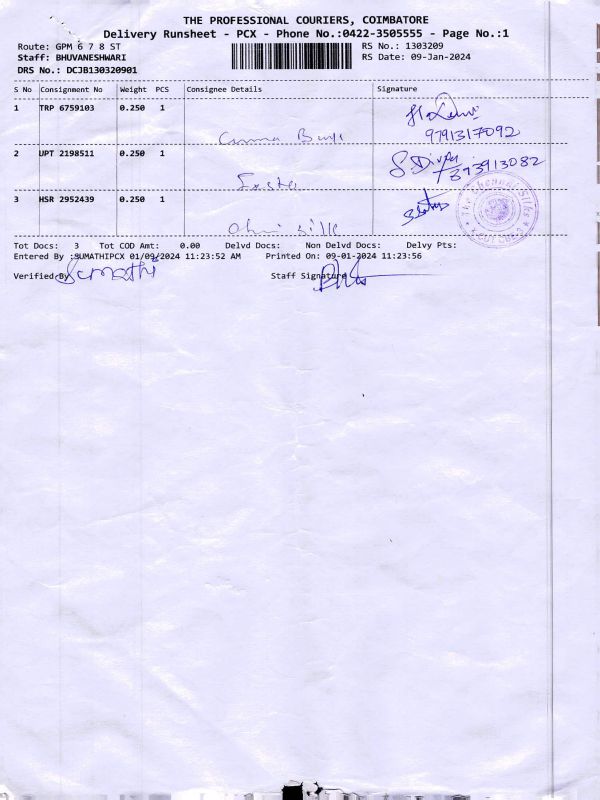 THE PROFESSIONAL COURIERS, COIMBATORE
Delivery Runsheet - PCX - Phone No.:0422-3505555 - Page No.:1
Route: GPM 6 7 8 ST
RS No.: 1303209
Staff: BHUVANESHWARI
RS Date: 09-Jan-2024
DRS No.: DCJB130320901
S No Consignment No Weight PCS Consignee Details Signature
1 TRP 6759103 0.250 1
9791317092
2 UPT 2198511 0.250 1
S Divya
3 HSR 2952439 0.250 1
The Chennai Silks
Tot Docs: 3 Tot COD Amt: 0.00 Delvd Docs: Non Delvd Docs: Delvy Pts:
Entered By :SUMATHIPCX 01/09/2024 11:23:52 AM Printed On: 09-01-2024 11:23:56
Verified By Sumathi Staff Signature